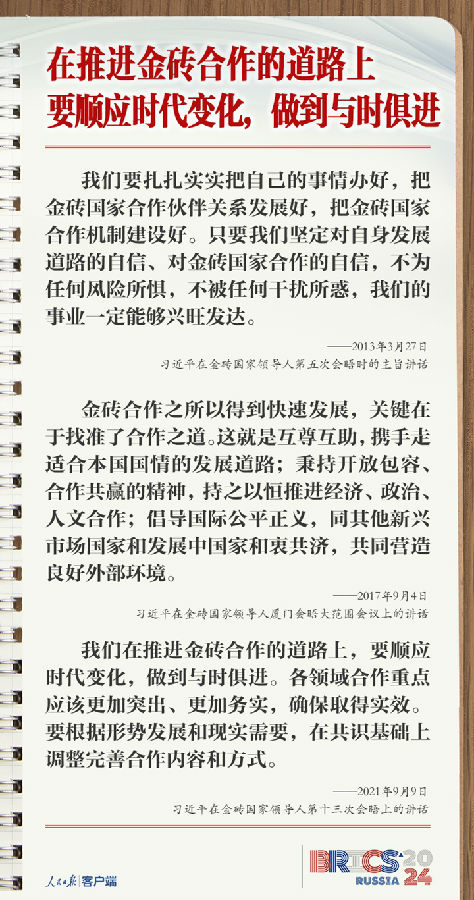 在推进金砖合作的道路上
要顺应时代变化，做到与时俱进
我们要扎扎实实把自己的事情办好，把
金砖国家合作伙伴关系发展好，把金砖国家
合作机制建设好。只要我们坚定对自身发展
道路的自信、对金砖国家合作的自信，不为
任何风险所惧，不被任何干扰所惑，我们的
事业一定能够兴旺发达。
——2013年3月27日
习近平在金砖国家领导人第五次会晤时的主旨讲话
金砖合作之所以得到快速发展，关键在
于找准了合作之道。这就是互尊互助，携手走
适合本国国情的发展道路；秉持开放包容、
合作共赢的精神，持之以恒推进经济、政治、
人文合作；倡导国际公平正义，同其他新兴
市场国家和发展中国家和衷共济，共同营造
良好外部环境。
——2017年9月4日
习近平在金砖国家领导人厦门会晤大范围会议上的讲话
我们在推进金砖合作的道路上，要顺应
时代变化，做到与时俱进。各领域合作重点
应该更加突出、更加务实，确保取得实效。
要根据形势发展和现实需要，在共识基础上
调整完善合作内容和方式。
——2021年9月9日
习近平在金砖国家领导人第十三次会晤上的讲话
人民日报 客户端
BRICS 2024
RUSSIA